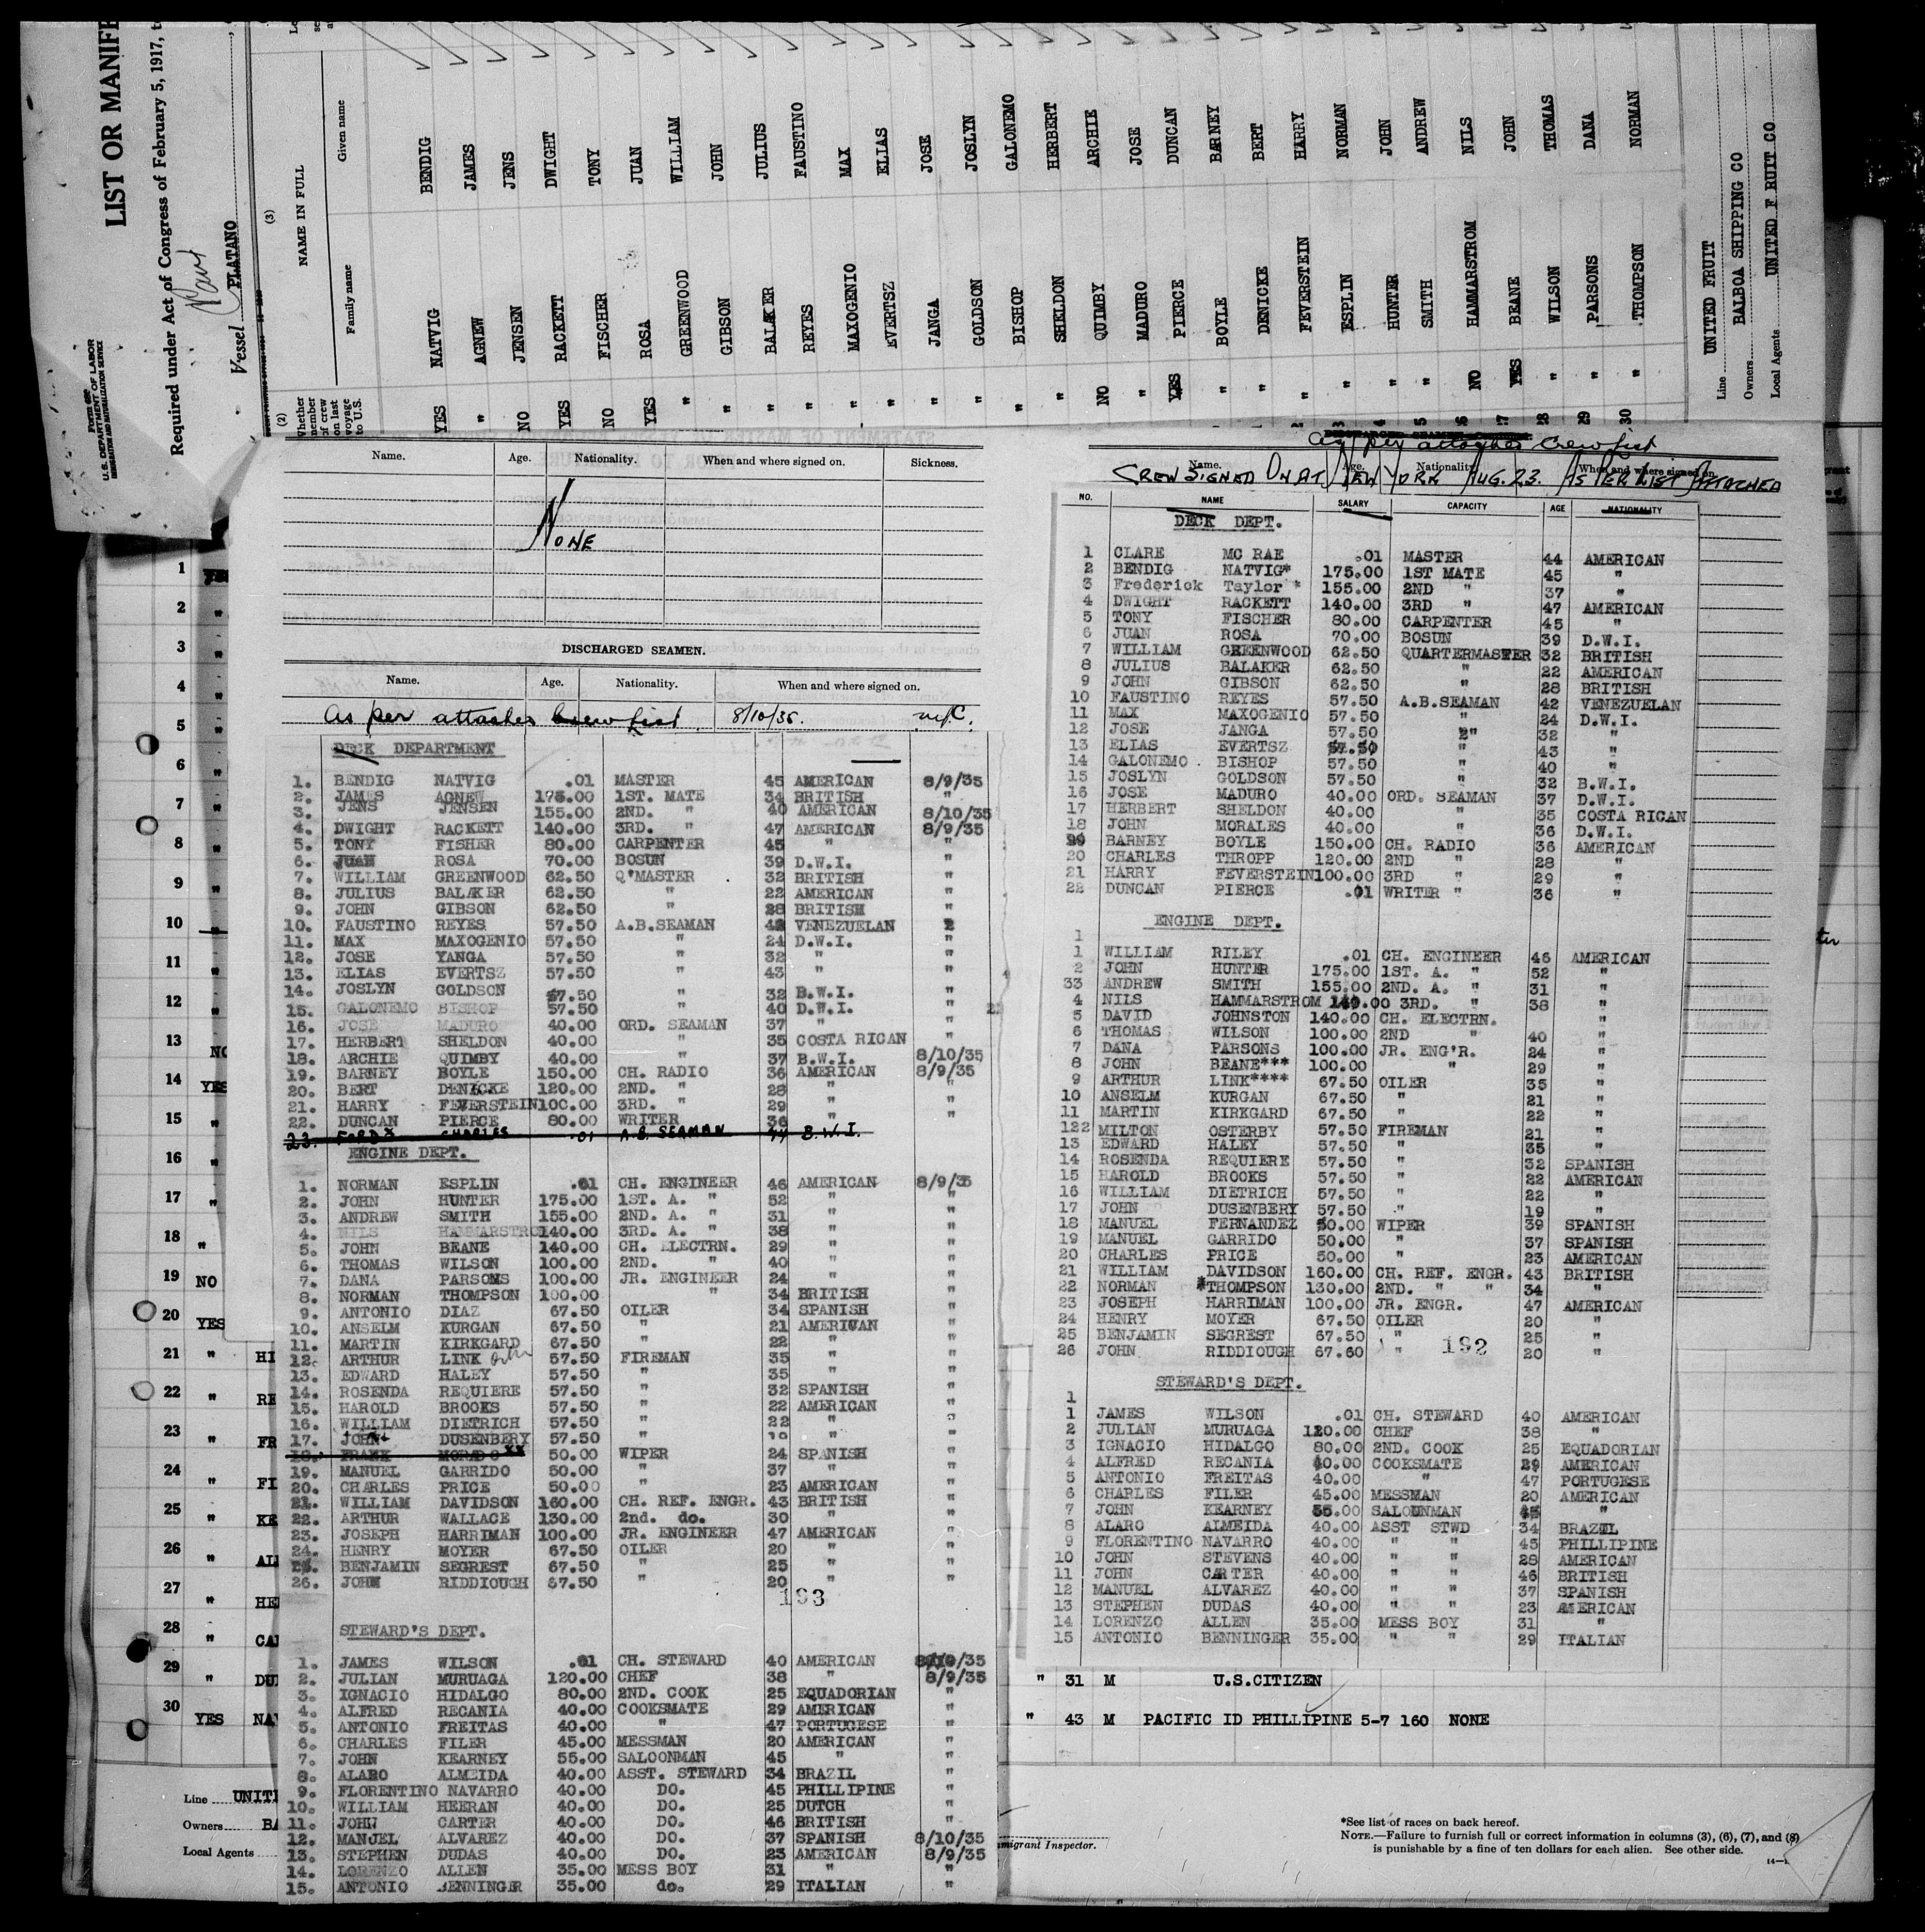 LIST OR MANIF
Required under Act of Congress of February 5, 1917, t
U.S. DEPARTMENT OF LABOR
IMMIGRATION AND NATURALIZATION SERVICE
Vessel PLATANO
(2) (3)
Whether member of crew on last voyage to U.S.
NAME IN FULL
Family name Given name
YES NATVIG BENDIG
" AGNEW JAMES
NO JENSEN JENS
YES RACKETT DWIGHT
NO FISCHER TONY
YES ROSA JUAN
" GREENWOOD WILLIAM
" GIBSON JOHN
" BALAKER JULIUS
" REYES FAUSTINO
" MAXOGENIO MAX
" EVERTSZ ELIAS
" JANGA JOSE
" GOLDSON JOSLYN
" BISHOP GALONEMO
" SHELDON HERBERT
NO QUIMBY ARCHIE
" MADURO JOSE
YES PIERCE DUNCAN
" BOYLE BARNEY
" DENICKE BERT
" FEVERSTEIN HARRY
" ESPLIN NORMAN
" HUNTER JOHN
" SMITH ANDREW
NO HAMMARSTROM NILS
YES BEANE JOHN
28 " WILSON THOMAS
29 " PARSONS DANA
30 " THOMPSON NORMAN
Line UNITED FRUIT
Owners BALBOA SHIPPING CO
Local Agents UNITED F RUIT CO
Name. Age. Nationality. When and where signed on. Sickness.
NONE
DISCHARGED SEAMEN.
Name. Age. Nationality. When and where signed on.
As per attaches Crew list 8/10/35. NYC.
DECK DEPARTMENT
1. BENDIG NATVIG .01 MASTER 45 AMERICAN 8/9/35
2. JAMES AGNEW 175.00 1ST. MATE 34 BRITISH "
3. JENS JENSEN 155.00 2ND. " 40 AMERICAN 8/10/35
4. DWIGHT RACKETT 140.00 3RD. " 47 AMERICAN 8/9/35
5. TONY FISHER 80.00 CARPENTER 45 " "
6. JUAN ROSA 70.00 BOSUN 39 D.W.I. "
7. WILLIAM GREENWOOD 62.50 Q'MASTER 32 BRITISH "
8. JULIUS BALAKER 62.50 " 22 AMERICAN "
9. JOHN GIBSON 62.50 " 28 BRITISH "
10. FAUSTINO REYES 57.50 A.B.SEAMAN 42 VENEZUELAN "
11. MAX MAXOGENIO 57.50 " 24 D.W.I. "
12. JOSE YANGA 57.50 " 32 " "
13. ELIAS EVERTSZ 57.50 " 43 " "
14. JOSLYN GOLDSON 57.50 " 32 B.W.I. "
15. GALONEMO BISHOP 57.50 " 40 D.W.I. "
16. JOSE MADURO 40.00 ORD. SEAMAN 37 " "
17. HERBERT SHELDON 40.00 " 35 COSTA RICAN "
18. ARCHIE QUIMBY 40.00 " 37 B.W.I. 8/10/35
19. BARNEY BOYLE 150.00 CH. RADIO 36 AMERICAN 8/9/35
20. BERT DENICKE 120.00 2ND. " 28 " "
21. HARRY FEVERSTEIN 100.00 3RD. " 29 " "
22. DUNCAN PIERCE 80.00 WRITER 36 " "
23. FORD CHARLES .01 A.B. SEAMAN 44 B.W.I.
ENGINE DEPT.
1. NORMAN ESPLIN .01 CH. ENGINEER 46 AMERICAN 8/9/35
2. JOHN HUNTER 175.00 1ST. A. " 52 " "
3. ANDREW SMITH 155.00 2ND. A. " 31 " "
4. NILS HAMMARSTRO 140.00 3RD. A. " 38 " "
5. JOHN BEANE 140.00 CH. ELECTRN. 29 " "
6. THOMAS WILSON 100.00 2ND. " 40 " "
7. DANA PARSONS 100.00 JR. ENGINEER 24 " "
8. NORMAN THOMPSON 100.00 " 34 BRITISH "
9. ANTONIO DIAZ 67.50 OILER 34 SPANISH "
10. ANSELM KURGAN 67.50 " 21 AMERICAN "
11. MARTIN KIRKGARD 67.50 " 22 " "
12. ARTHUR LINK 57.50 FIREMAN 35 " "
13. EDWARD HALEY 57.50 " 35 " "
14. ROSENDA REQUIERE 57.50 " 32 SPANISH "
15. HAROLD BROOKS 57.50 " 22 AMERICAN "
16. WILLIAM DIETRICH 57.50 " 22 " "
17. JOHN DUSENBERY 57.50 " 19 " "
18. FRANK 50.00 WIPER 24 SPANISH "
19. MANUEL GARRIDO 50.00 " 37 " "
20. CHARLES PRICE 50.00 " 23 AMERICAN "
21. WILLIAM DAVIDSON 160.00 CH. REF. ENGR. 43 BRITISH "
22. ARTHUR WALLACE 130.00 2nd. do. 30 " "
23. JOSEPH HARRIMAN 100.00 JR. ENGINEER 47 AMERICAN "
24. HENRY MOYER 67.50 OILER 20 " "
25. BENJAMIN SEGREST 67.50 " 25 " "
26. JOHN RIDDIOUGH 67.50 " 20 " "
193
STEWARD'S DEPT.
1. JAMES WILSON .01 CH. STEWARD 40 AMERICAN 8/10/35
2. JULIAN MURUAGA 120.00 CHEF 38 " 8/9/35
3. IGNACIO HIDALGO 80.00 2ND. COOK 25 EQUADORIAN "
4. ALFRED RECANIA 40.00 COOKSMATE 29 AMERICAN "
5. ANTONIO FREITAS 40.00 " 47 PORTUGESE "
6. CHARLES FILER 45.00 MESSMAN 20 AMERICAN "
7. JOHN KEARNEY 55.00 SALOONMAN 45 " "
8. ALARO ALMEIDA 40.00 ASST. STEWARD 34 BRAZIL "
9. FLORENTINO NAVARRO 40.00 DO. 45 PHILLIPINE "
10. WILLIAM HEERAN 40.00 DO. 25 DUTCH "
11. JOHN CARTER 40.00 DO. 46 BRITISH "
12. MANUEL ALVAREZ 40.00 DO. 37 SPANISH 8/10/35
13. STEPHEN DUDAS 40.00 DO. 23 AMERICAN 8/9/35
14. LORENZO ALLEN 35.00 MESS BOY 31 " "
15. ANTONIO BENNINGER 35.00 do. 29 ITALIAN "
As per attaches Crew list
Name. Age. Nationality. When and where signed on.
CREW SIGNED ON AT NEW YORK AUG. 23. AS PER LIST ATTACHED
NO. NAME SALARY CAPACITY AGE NATIONALITY
DECK DEPT.
1 CLARE MC RAE .01 MASTER 44 AMERICAN
2 BENDIG NATVIG* 175.00 1ST MATE 45 "
3 Frederick Taylor * 155.00 2ND " 37 "
4 DWIGHT RACKETT 140.00 3RD " 47 AMERICAN
5 TONY FISCHER 80.00 CARPENTER 45 "
6 JUAN ROSA 70.00 BOSUN 39 D.W.I.
7 WILLIAM GREENWOOD 62.50 QUARTERMASTER 32 BRITISH
8 JULIUS BALAKER 62.50 " 22 AMERICAN
9 JOHN GIBSON 62.50 " 28 BRITISH
10 FAUSTINO REYES 57.50 A.B.SEAMAN 42 VENEZUELAN
11 MAX MAXOGENIO 57.50 " 24 D.W.I.
12 JOSE JANGA 57.50 " 32 "
13 ELIAS EVERTSZ 57.50 " 43 "
14 GALONEMO BISHOP 57.50 " 40 "
15 JOSLYN GOLDSON 57.50 " 32 B.W.I.
16 JOSE MADURO 40.00 ORD. SEAMAN 37 D.W.I.
17 HERBERT SHELDON 40.00 " 35 COSTA RICAN
18 JOHN MORALES 40.00 " 36 D.W.I.
19 BARNEY BOYLE 150.00 CH. RADIO 36 AMERICAN
20 CHARLES THROPP 120.00 2ND " 28 "
21 HARRY FEVERSTEIN 100.00 3RD " 29 "
22 DUNCAN PIERCE .01 WRITER " 36 "
ENGINE DEPT.
1
1 WILLIAM RILEY .01 CH. ENGINEER 46 AMERICAN
2 JOHN HUNTER 175.00 1ST. A. " 52 "
33 ANDREW SMITH 155.00 2ND. A. " 31 "
4 NILS HAMMARSTROM 140.00 3RD. " 38 "
5 DAVID JOHNSTON 140.00 CH. ELECTRN. "
6 THOMAS WILSON 100.00 2ND " 40 "
7 DANA PARSONS 100.00 JR. ENG'R. 24 "
8 JOHN BEANE*** 100.00 " 29 "
9 ARTHUR LINK**** 67.50 OILER 35 "
10 ANSELM KURGAN 67.50 " 21 "
11 MARTIN KIRKGARD 67.50 " 22 "
122 MILTON OSTERBY 57.50 FIREMAN 21 "
13 EDWARD HALEY 57.50 " 35 "
14 ROSENDA REQUIERE 57.50 " 32 SPANISH
15 HAROLD BROOKS 57.50 " 22 AMERICAN
16 WILLIAM DIETRICH 57.50 " 22 "
17 JOHN DUSENBERY 57.50 " 19 "
18 MANUEL FERNANDEZ 50.00 WIPER 39 SPANISH
19 MANUEL GARRIDO 50.00 " 37 SPANISH
20 CHARLES PRICE 50.00 " 23 AMERICAN
21 WILLIAM DAVIDSON 160.00 CH. REF. ENGR. 43 BRITISH
22 NORMAN *THOMPSON 130.00 2ND. " " 34 "
23 JOSEPH HARRIMAN 100.00 JR. ENGR. 47 AMERICAN
24 HENRY MOYER 67.50 OILER 20 "
25 BENJAMIN SEGREST 67.50 " 25 "
26 JOHN RIDDIOUGH 67.60 " 20 "
192
STEWARD'S DEPT.
1
1 JAMES WILSON .01 CH. STEWARD 40 AMERICAN
2 JULIAN MURUAGA 120.00 CHEF 38 "
3 IGNACIO HIDALGO 80.00 2ND. COOK 25 EQUADORIAN
4 ALFRED RECANIA 40.00 COOKSMATE 29 AMERICAN
5 ANTONIO FREITAS 40.00 " 47 PORTUGESE
6 CHARLES FILER 45.00 MESSMAN 20 AMERICAN
7 JOHN KEARNEY 55.00 SALOUNMAN 45 "
8 ALARO ALMEIDA 40.00 ASST STWD 34 BRAZIL
9 FLORENTINO NAVARRO 40.00 " " 45 PHILLIPINE
10 JOHN STEVENS 40.00 " " 28 AMERICAN
11 JOHN CARTER 40.00 " " 46 BRITISH
12 MANUEL ALVAREZ 40.00 " " 37 SPANISH
13 STEPHEN DUDAS 40.00 " " 23 AMERICAN
14 LORENZO ALLEN 35.00 MESS BOY 31 "
15 ANTONIO BENNINGER 35.00 " " 29 ITALIAN
" 31 M U.S.CITIZEN
" 43 M PACIFIC ID PHILLIPINE 5-7 160 NONE
1
2 "
3 "
4 "
5 "
6 "
7 "
8 "
9 "
10 "
11 "
12 "
13 NO
14 YES
15 "
16 "
17 "
18 "
19 NO
20 YES
21 " HI
22 " RE
23 " FR
24 " FI
25 " KE
26 " AL
27 " HE
28 " CA
29 " DU
30 YES NA
Line UNITE
Owners BA
Local Agents
migrant Inspector.
*See list of races on back hereof.
NOTE.—Failure to furnish full or correct information in columns (3), (6), (7), and (8)
is punishable by a fine of ten dollars for each alien. See other side.
14—1